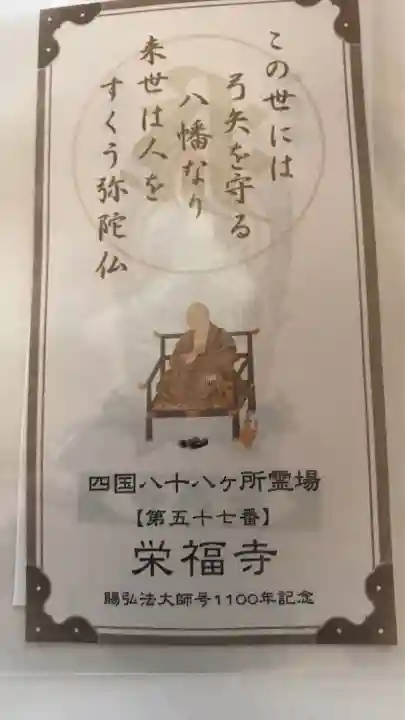 この世には
弓矢を守る
八幡なり
来世は人を
すくう弥陀仏
四国八十八ヶ所霊場
【第五十七番】
栄福寺
賜弘法大師号1100年記念